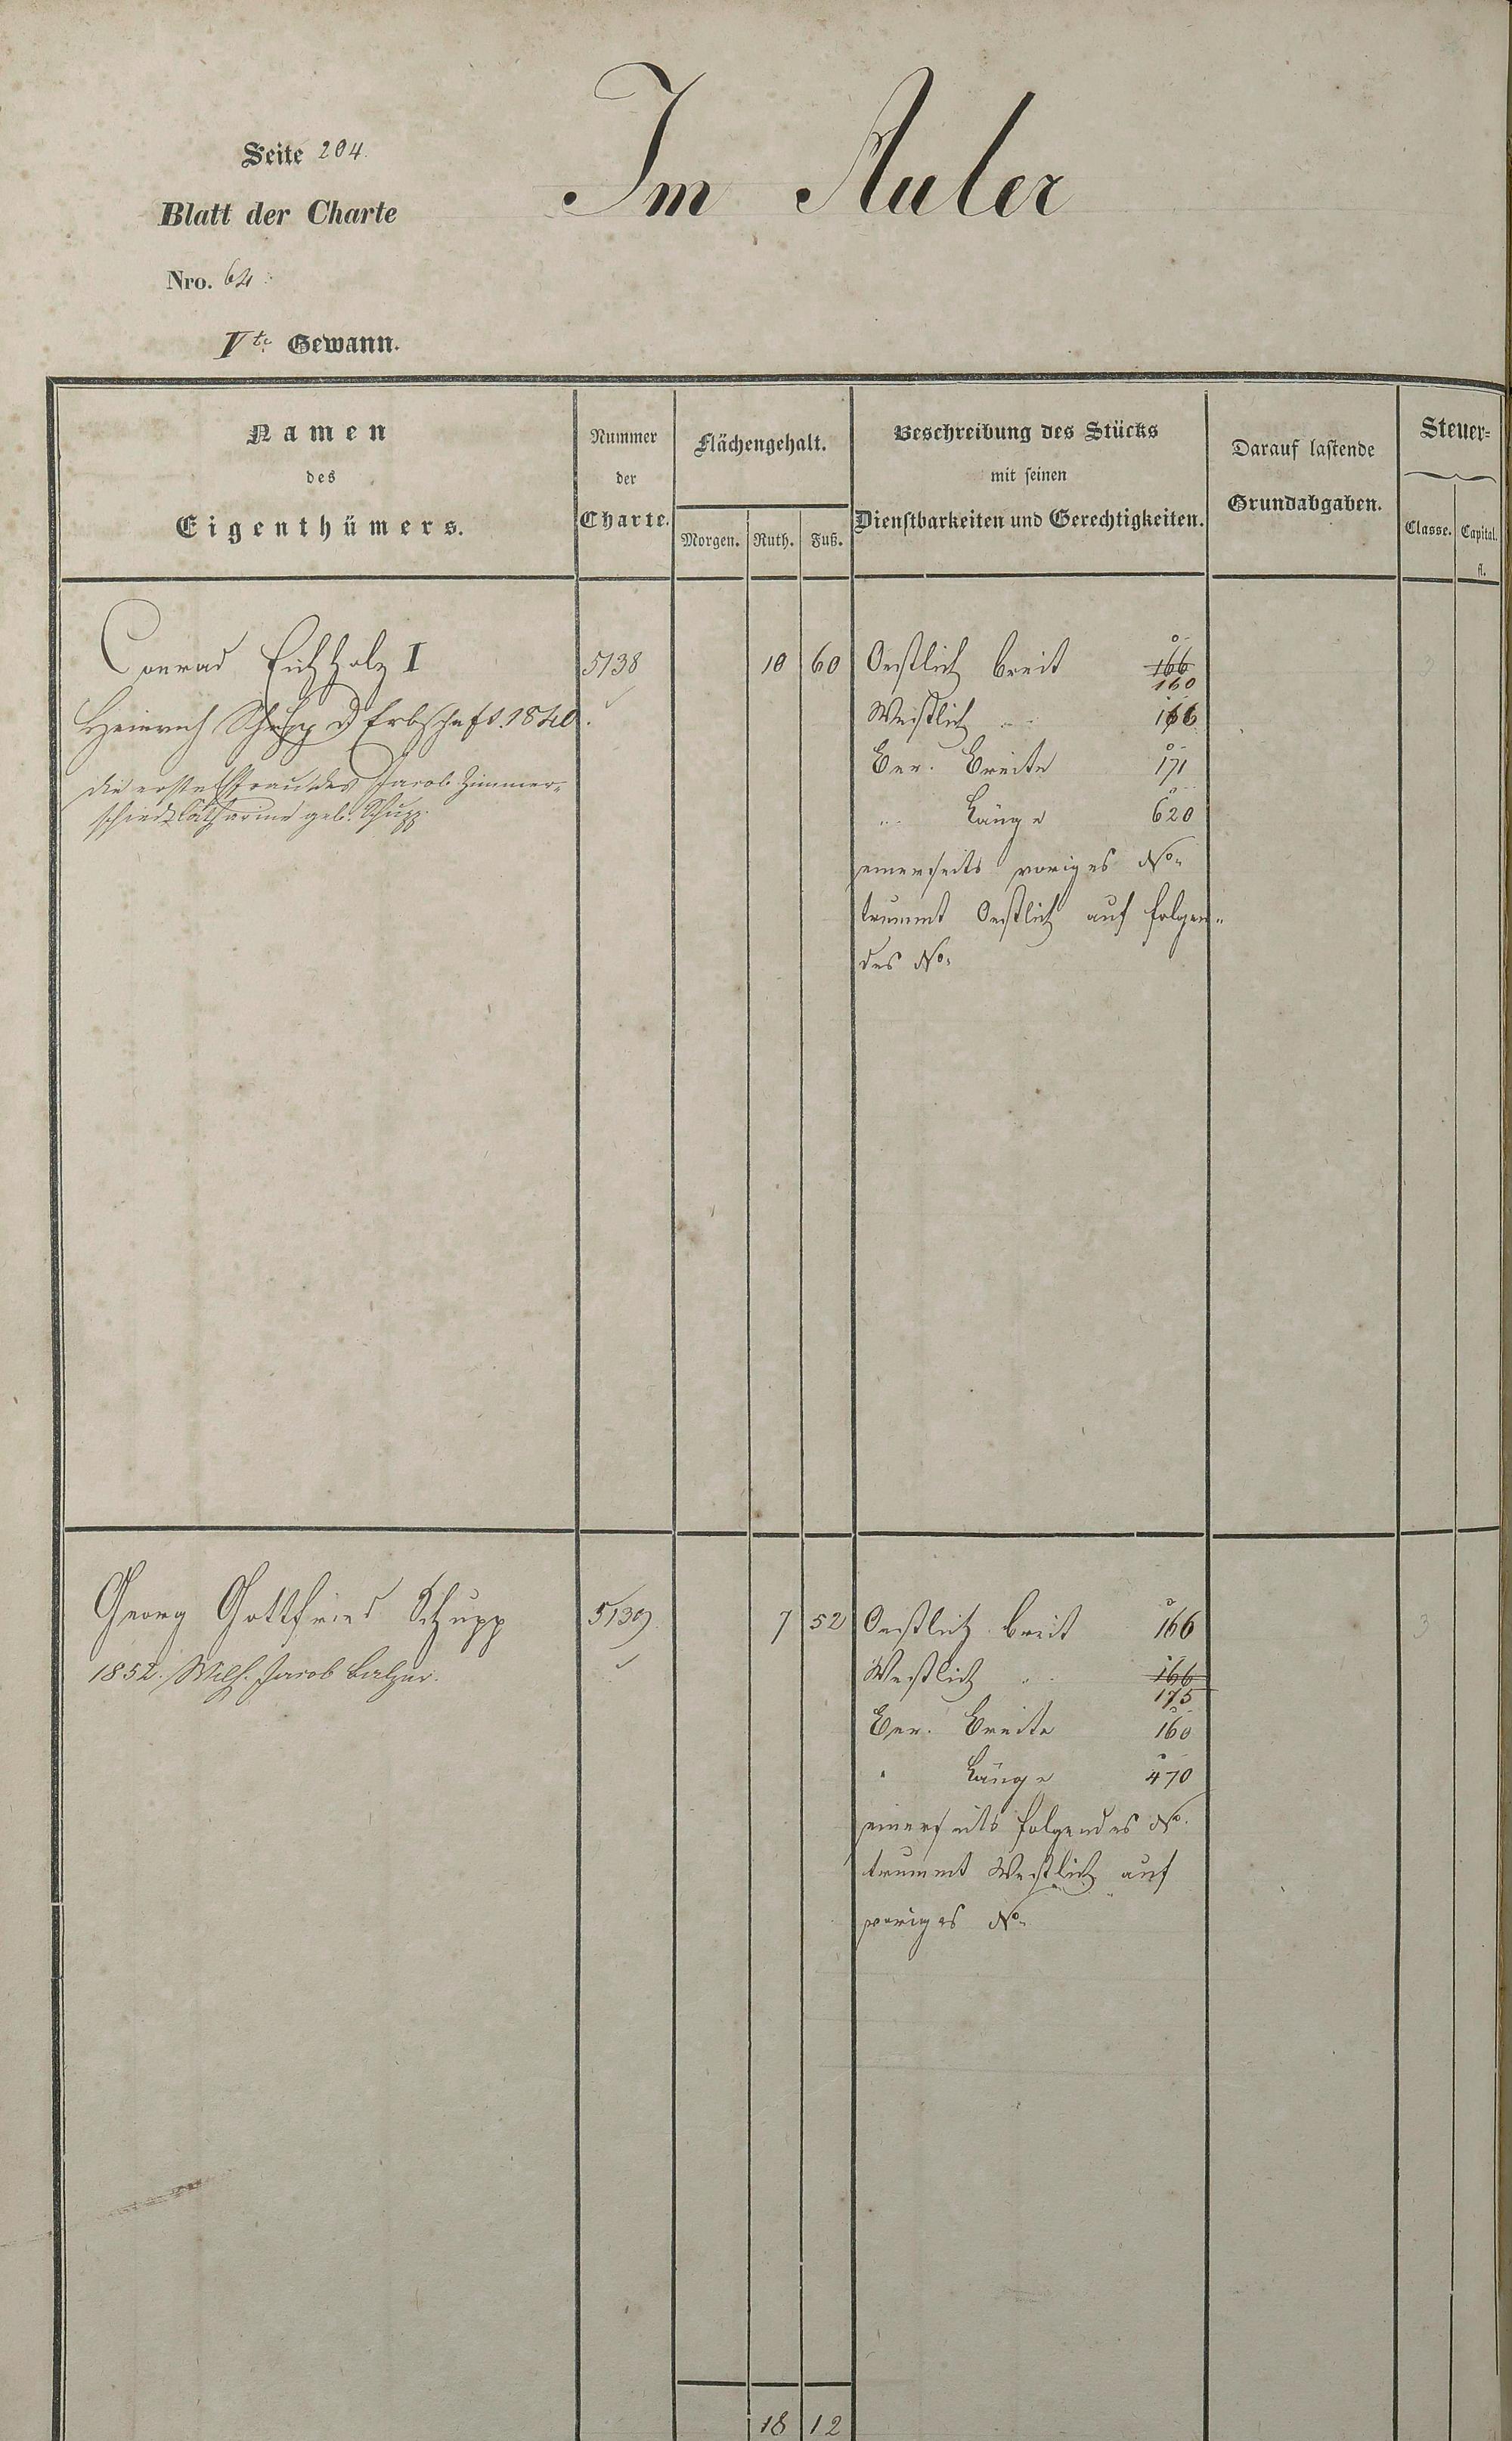 Im Auler
Seite 204.
Blatt der Charte
Nro. 64
Vte Gewann.
Namen
des
Eigenthümers.
Nummer
der
Charte.
Flächengehalt.
Morgen. Ruth. Fuß.
Beschreibung des Stücks
mit seinen
Dienstbarkeiten und Gerechtigkeiten.
Darauf lastende
Grundabgaben.
Steuer-
Classe. Capital.
fl.
Conrad Eichholz I 5138 10 60 Oestlich breit 166 3
160
Heinrich Schupp d Erbschaft. 1840.
Westlich " 166
die erste Ehefrau des Jacob Zimmer-
schied Catharine geb. Schupp.
Ver. Breite 171
" Länge 620
einerseits voriges No.
trummt Oestlich auf folgen-
des No.
Georg Gottfried Schupp 5139 7 52 Oestlich breit 166 3
1852. Wilh. Jacob Balzer.
Westlich " 166
175
Ver. Breite 160
" Länge 470
einerseits folgendes No.
trummt Westlich auf
voriges No.
18 12